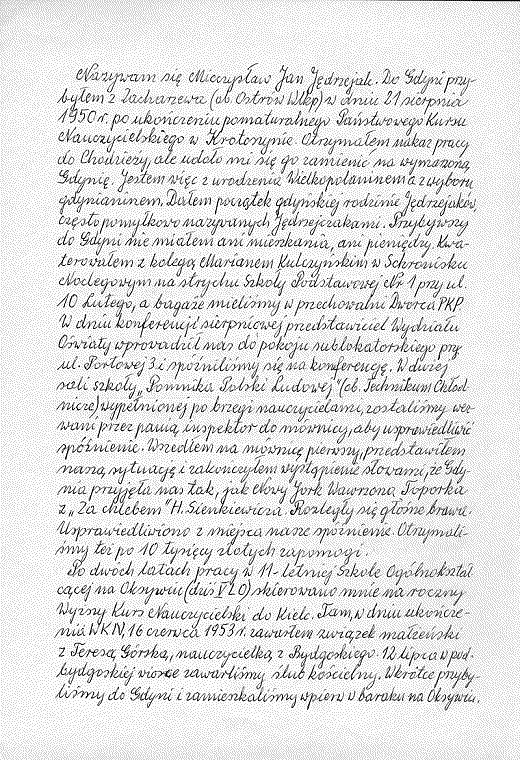 Nazywam się Mieczysław Jan Jędrzejak. Do Gdyni przy-
byłem z Zacharzewa (ob. Ostrów Wlkp) w dniu 21 sierpnia
1950 r. po ukończeniu pomaturalnego Państwowego Kursu
Nauczycielskiego w Krotoszynie. Otrzymałem nakaz pracy
do Chodzieży, ale udało mi się go zamienić na wymarzoną
Gdynię. Jestem więc z urodzenia Wielkopolaninem a z wyboru
gdynianinem. Dałem początek gdyńskiej rodzinie Jędrzejaków,
często pomyłkowo nazywanych Jędrzejczakami. Przybywszy
do Gdyni nie miałem ani mieszkania, ani pieniędzy. Kwa-
terowałem z kolegą Marianem Kulczyńskim w Schronisku
Noclegowym na strychu Szkoły Podstawowej Nr 1 przy ul.
10 Lutego, a bagaże mieliśmy w przechowalni Dworca PKP.
W dniu konferencji sierpniowej przedstawiciel Wydziału
Oświaty wprowadził nas do pokoju sublokatorskiego przy
ul. Portowej 3 i spóźniliśmy się na konferencję. W dużej
sali szkoły „Pomnika Polski Ludowej" (ob. Technikum Chłod-
nicze) wypełnionej po brzegi nauczycielami, zostaliśmy wez-
wani przez panią inspektor do mównicy, aby usprawiedliwić
spóźnienie. Wszedłem na mównicę pierwszy, przedstawiłem
naszą sytuację i zakończyłem wystąpienie słowami, że Gdy-
nia przyjęła nas tak, jak Nowy Jork Wawrzona Toporka
z „Za chlebem" H. Sienkiewicza. Rozległy się głośne brawa.
Usprawiedliwiono z miejsca nasze spóźnienie. Otrzymali-
śmy też po 10 tysięcy złotych zapomogi.
Po dwóch latach pracy w 11-letniej Szkole Ogólnokształ-
cącej na Oksywiu (dziś V LO) skierowano mnie na roczny
Wyższy Kurs Nauczycielski do Kielc. Tam, w dniu ukończe-
nia WKN, 16 czerwca 1953 r. zawarłem związek małżeński
z Teresą Górską, nauczycielką z Bydgoskiego. 12 lipca w pod-
bydgoskiej wiosce zawarliśmy ślub kościelny. Wkrótce przyby-
liśmy do Gdyni i zamieszkaliśmy wpierw w baraku na Oksywiu.